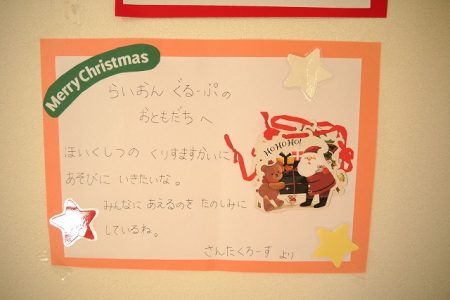 Merry Christmas
らいおん ぐるーぷの
おともだち へ
HO!HO!HO!
ほいくしつの くりすますかいに
あそびに いきたいな。
みんなに あえるのを たのしみに
しているね。
さんたくろーす より